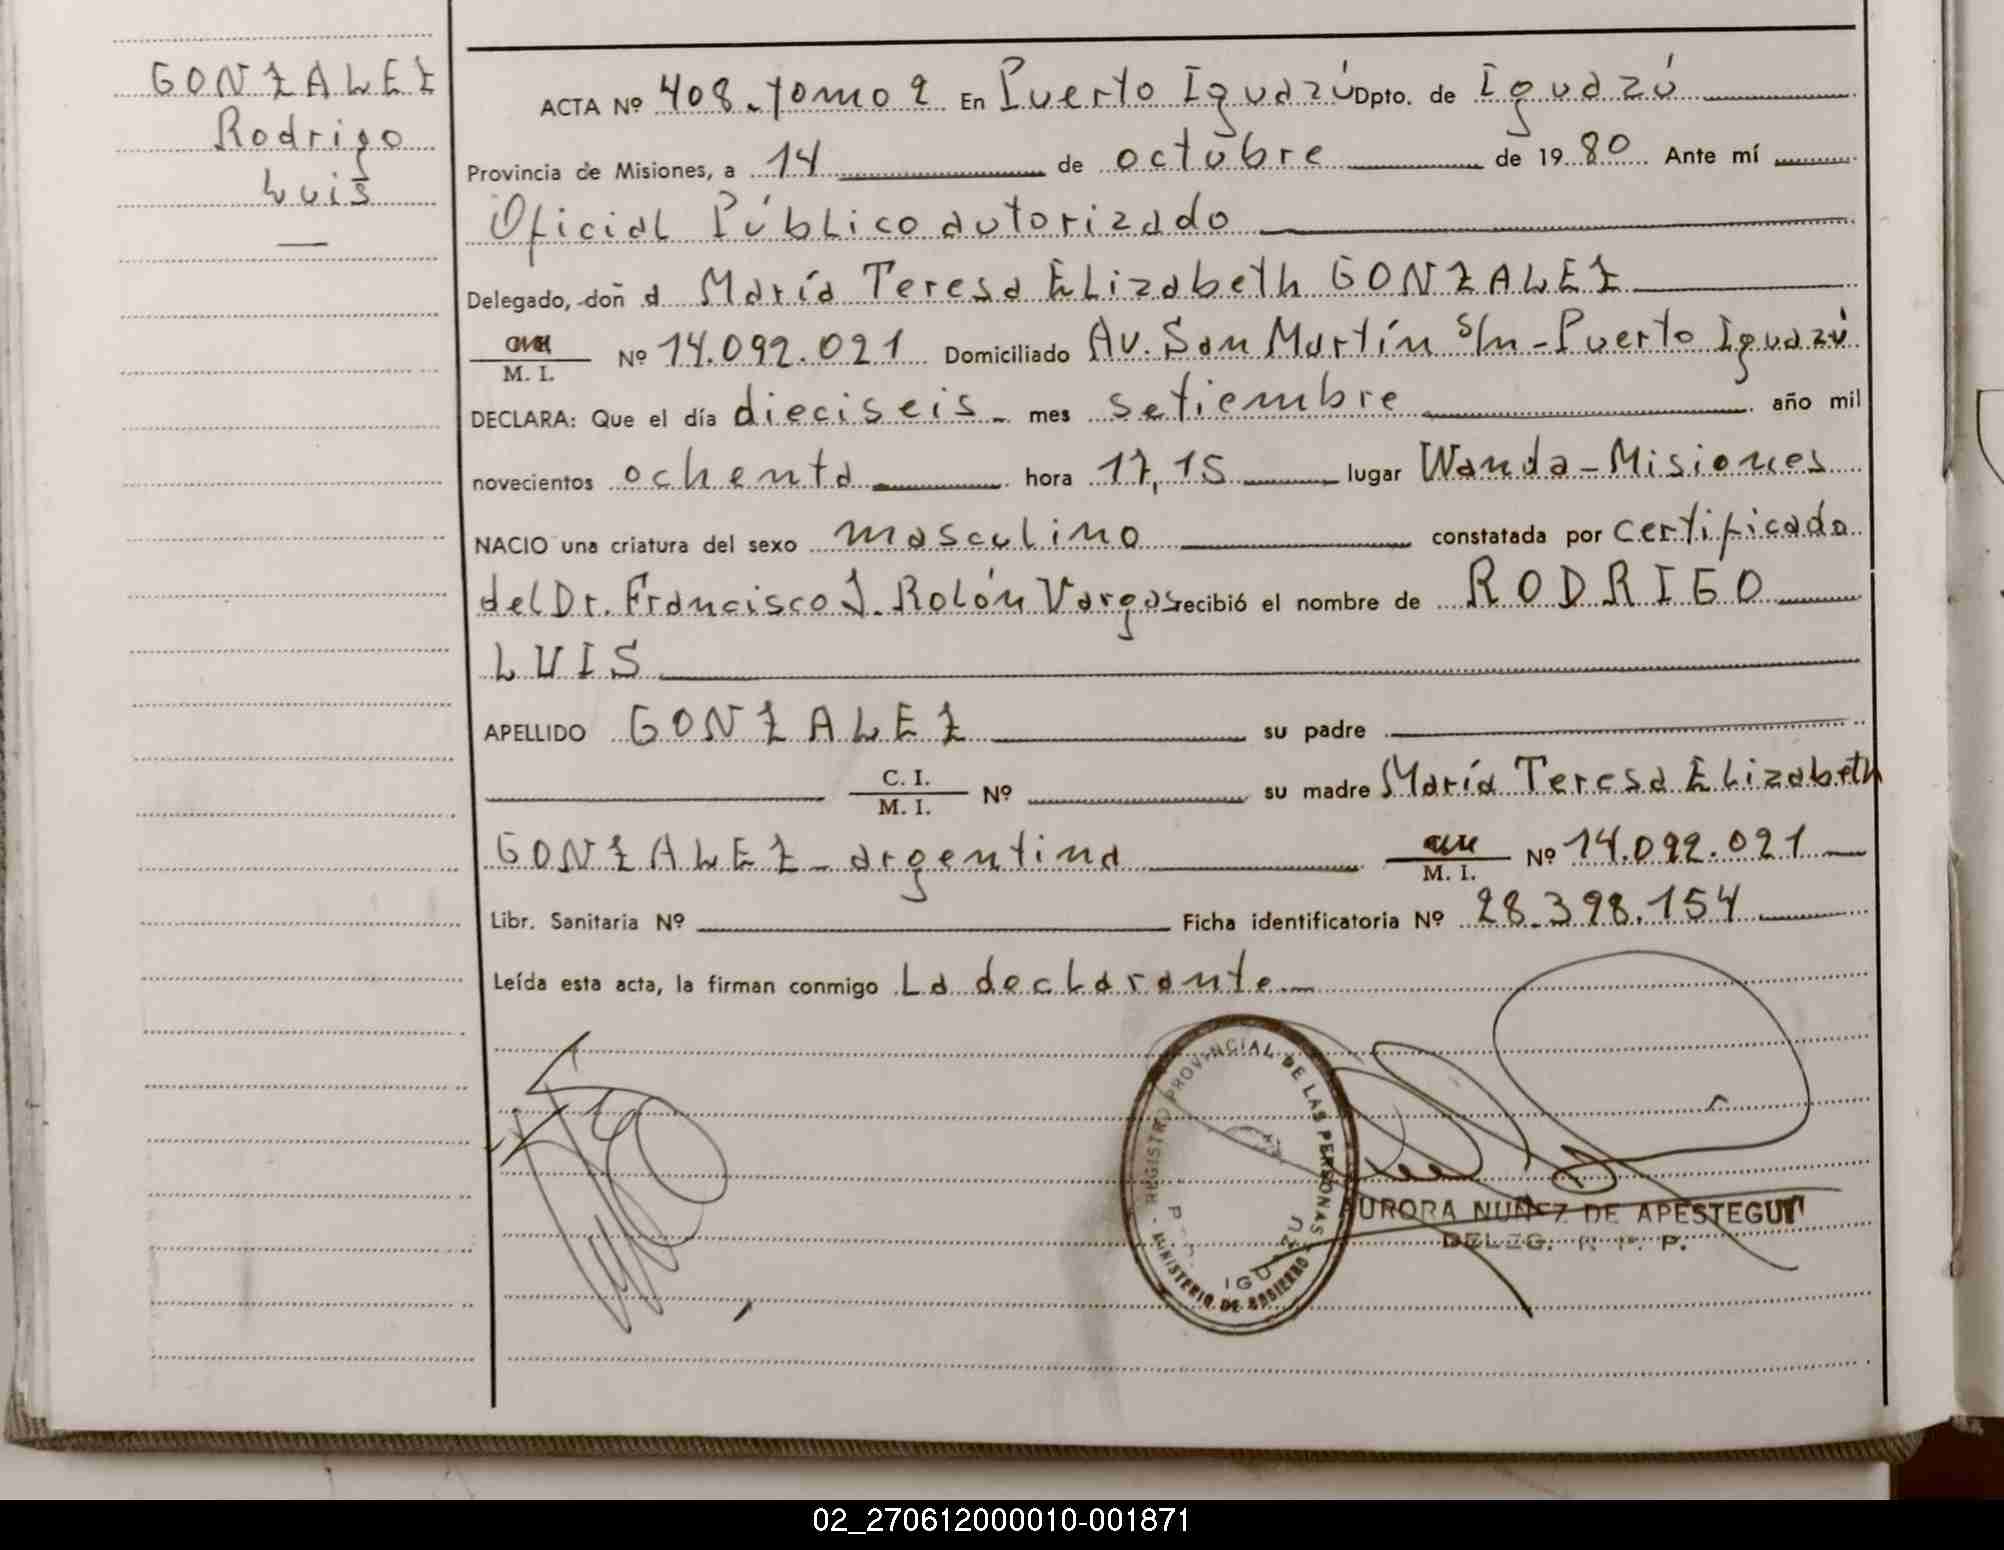 GONZALEZ
Rodrigo
Luis
ACTA Nº 408. tomo 2 En Puerto Iguazú Dpto. de Iguazú
Provincia de Misiones, a 14 de octubre de 1980 Ante mí
Oficial Público autorizado
Delegado, doña María Teresa Elizabeth GONZALEZ
M. I. Nº 14.092.021 Domiciliado Av. San Martín s/n - Puerto Iguazú
DECLARA: Que el día dieciseis mes setiembre año mil
novecientos ochenta hora 17,15 lugar Wanda - Misiones
NACIO una criatura del sexo masculino constatada por certificado
del Dr. Francisco J. Rolón Vargas recibió el nombre de RODRIGO
LUIS
APELLIDO GONZALEZ su padre
C. I. / M. I. Nº su madre María Teresa Elizabeth
GONZALEZ - argentina M. I. Nº 14.092.021
Libr. Sanitaria Nº Ficha identificatoria Nº 28.398.154
Leída esta acta, la firman conmigo La declarante.
REGISTRO PROVINCIAL DE LAS PERSONAS
MINISTERIO DE GOBIERNO
IGUAZU
URORA NUÑEZ DE APESTEGUI
DELEG. R. P. P.
02_270612000010-001871